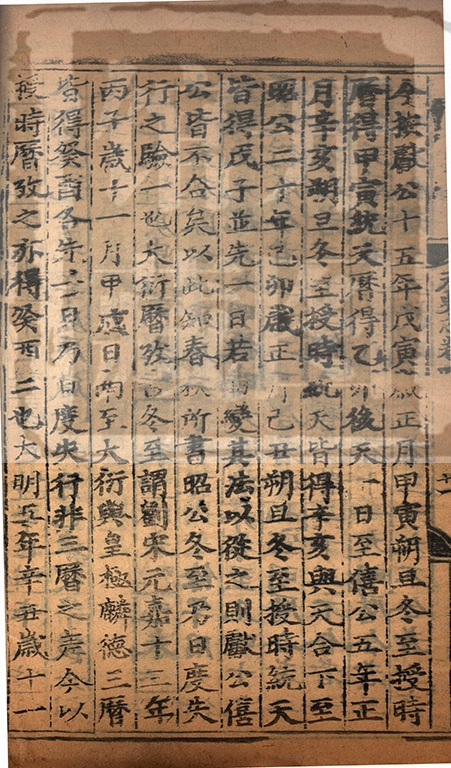 今按獻公十五年戊寅歲正月甲寅朔旦冬至授時
曆得甲寅統天曆得乙卯後天一日至僖公五年正
月辛亥朔旦冬至授時統天皆得辛亥與天合下至
昭公二十年己卯歲正月己丑朔旦冬至授時統天
皆得戊子並先一日若曲變其法以從之則獻公僖
公皆不合矣以此知春秋所書昭公冬至乃日度失
行之驗一也大衍曆攷古冬至謂劉宋元嘉十三年
丙子歲十一月甲戌日南至大衍與皇極麟德三曆
皆得癸酉各先一日乃日度失行非三曆之差今以
授時曆攷之亦得癸酉二也大明五年辛丑歲十一